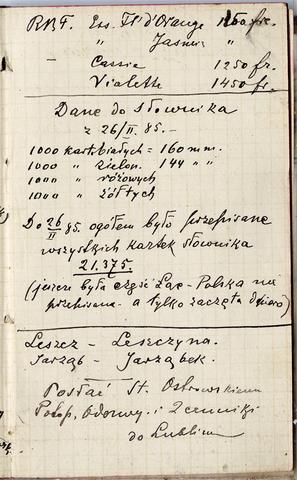 RBF. Ess. Fl d'Orange 1200 frc.
" Jasmin "
- Cassie 1250 fr.
Violette 1450 fr.
Dane do słownika
z 26/II. 85.-
1000 kart białych = 160 mm.
1000 " zielon. 144 " "
1000 " różowych
1000 " żółtych
Do 26/II 85. ogółem było przepisane
wszystkich kartek słownika
21.375.
(jeszcze była część Łac-Polska nie
przepisana - a tylko zaczęta dopiero)
Leszcz - Leszczyna.
Jarząb - Jarząbek.
Posłać St. Ostrowskiemu
i Cenniki
do Lublina